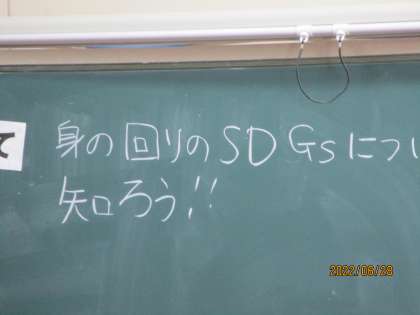 て
身の回りのSDGsにつ
知ろう!!
2022/06/28